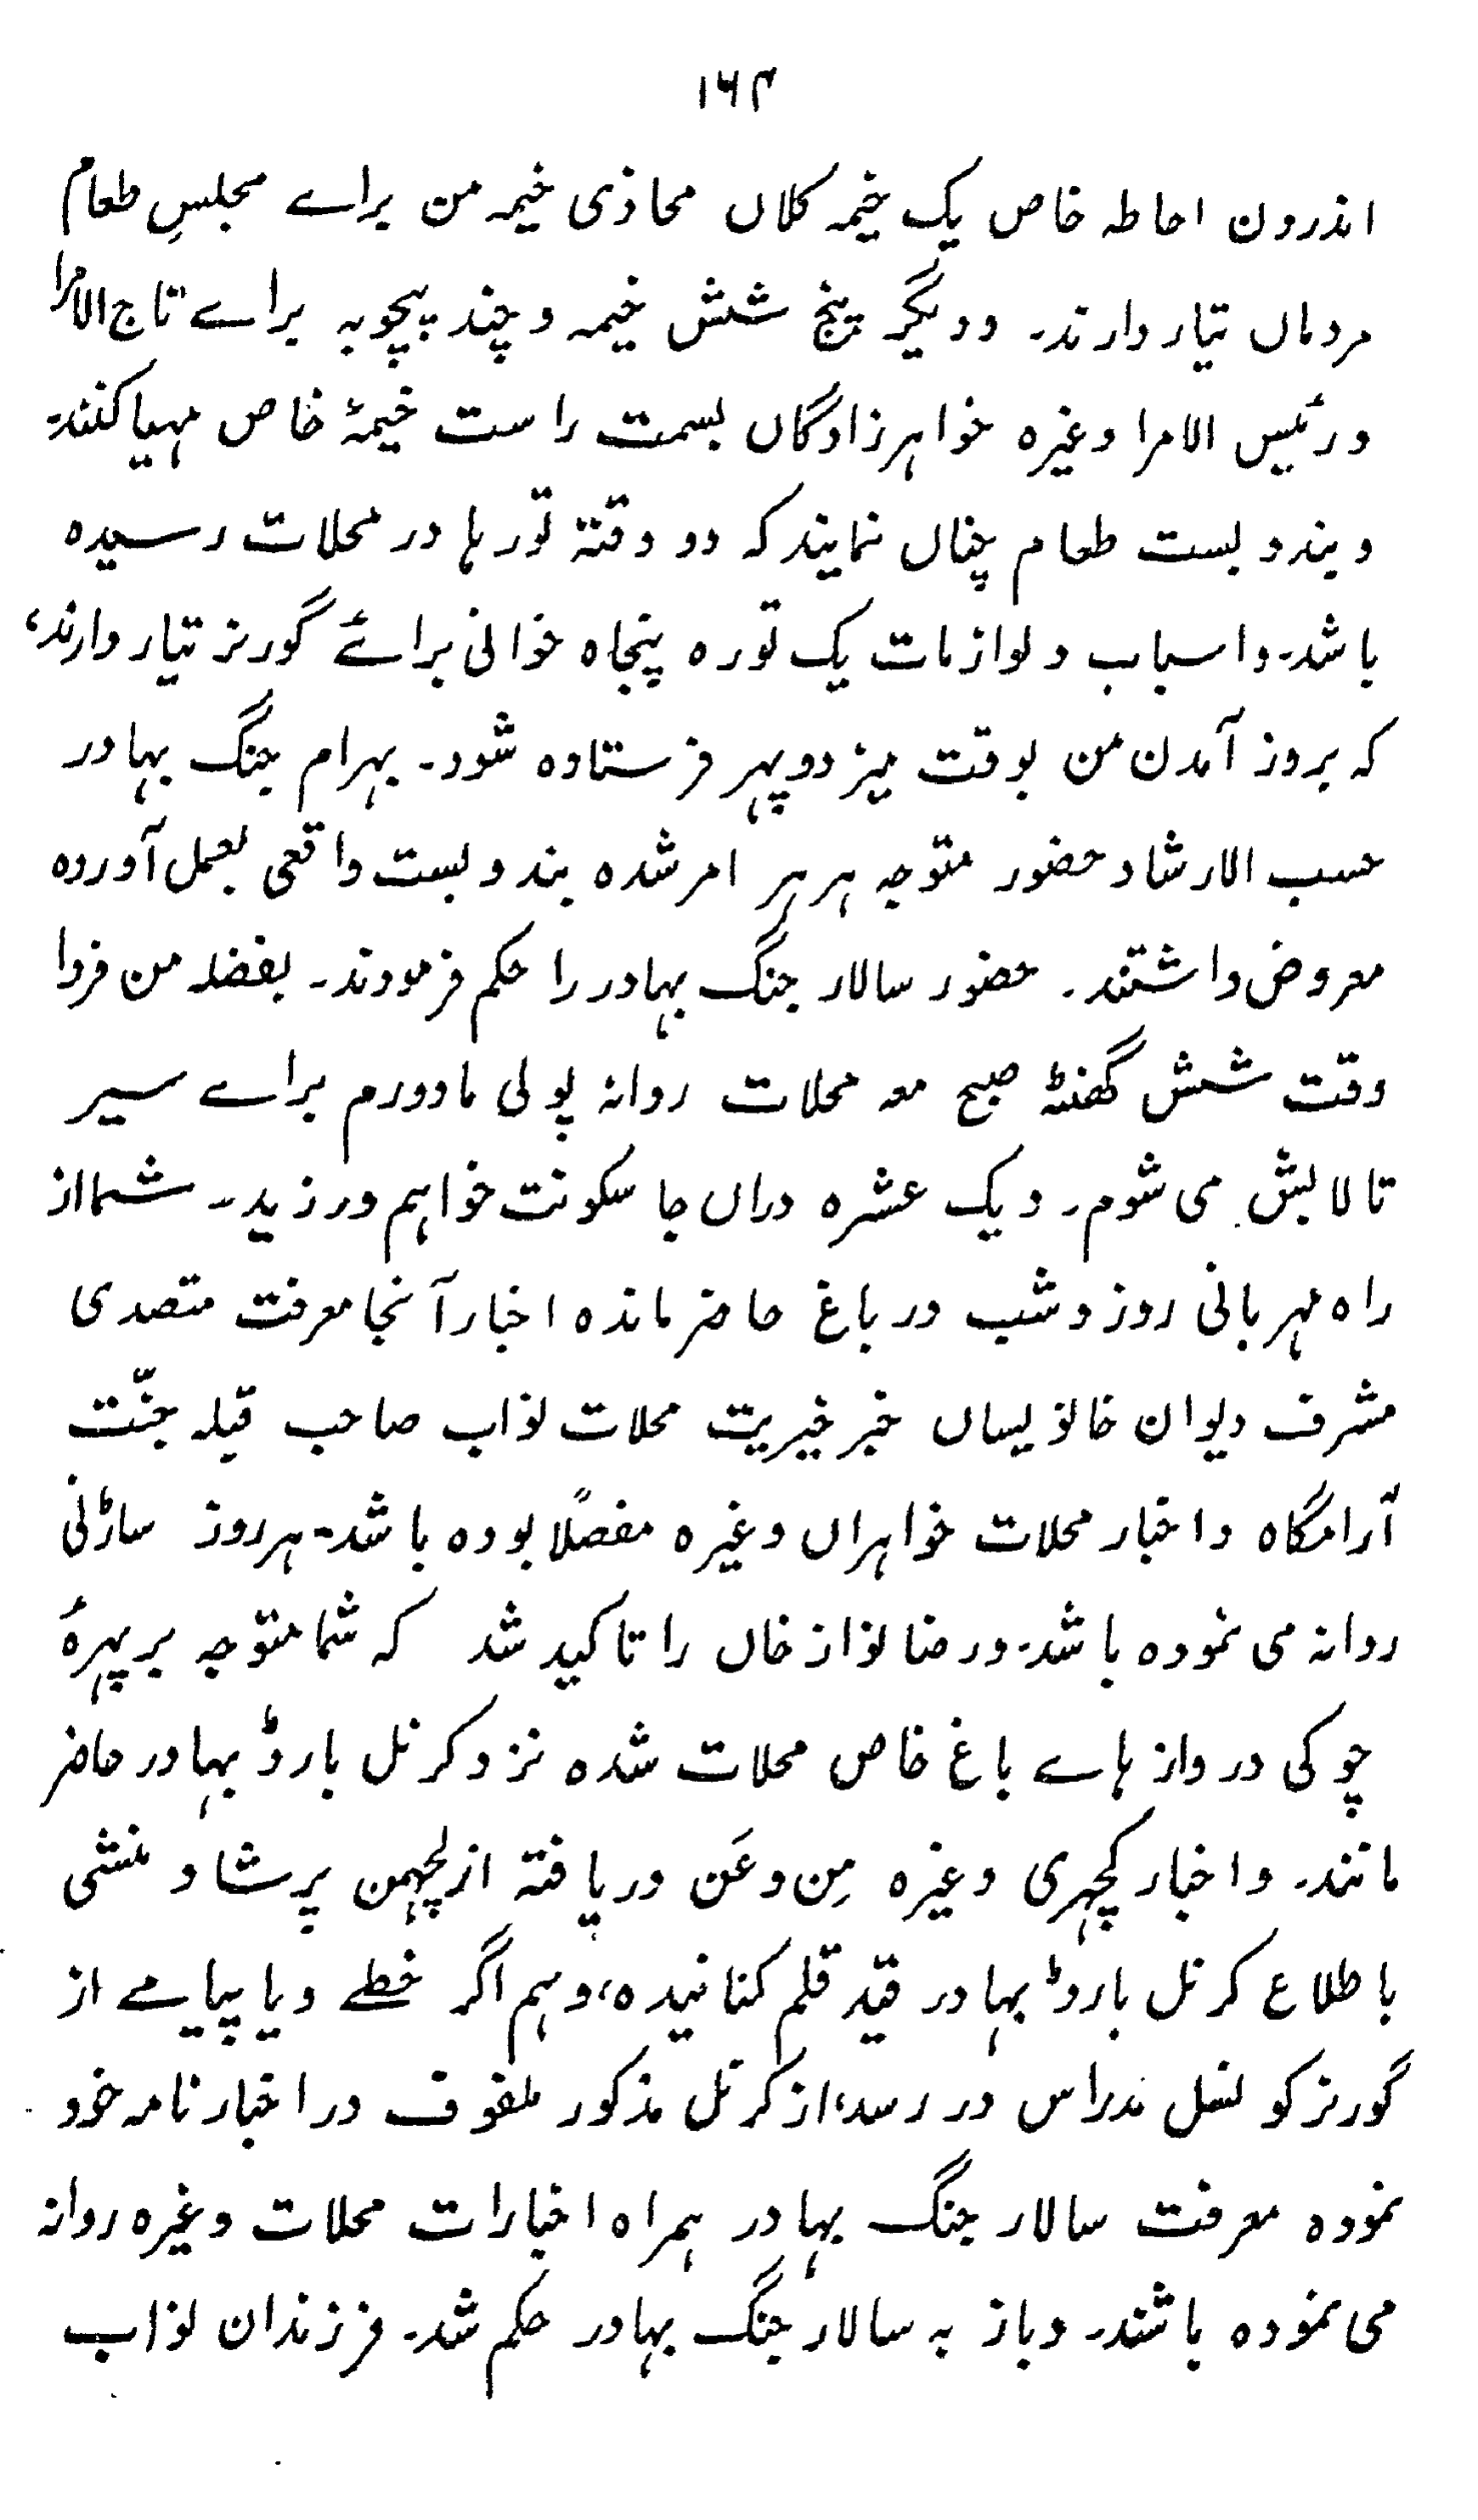 ۱۶۴
اندرون احاطہ خاص یک خیمہ کلاں محاذی خیمہ من براے مجلسِ طعام
مردماں تیار دارند۔ ودیگر پنج شش خیمہ و چند پیچوبہ براے تاج الامرا
ورئیس الامرا وغیرہ خواہرزادگاں بسمت راست خیمۂ خاص مہیا کنند۔
وبندوبست طعام چناں نمایند کہ دو وقتۃ تورہا در محلات رسیدہ
باشد۔ واسباب ولوازمات یک تورہ پنجاہ خوانی برائے گورنر تیار دارند،
کہ بروز آمدن من بوقت میز دوپہر فرستادہ شود۔ بہرام جنگ بہادر
حسب الارشاد حضور متوجہ ہر ہر امر شدہ بندوبست واقعی بعمل آوردہ
معروض داشتند۔ حضور سالار جنگ بہادر را حکم فرمودند۔ بفضلہ من فردا
وقت شش گھنٹہ صبح معہ محلات روانہ پولی مادورم براے سیر
تالابش می شوم۔ ویک عشرہ دراں جا سکونت خواہم ورزید۔ شما از
راہ مہربانی روز وشب در باغ حاضر ماندہ اخبار آنجا معرفت متصدی
مشرف دیوان خانویساں خبر خیریت محلات نواب صاحب قبلہ جنّت
آرامگاہ واخبار محلات خواہراں وغیرہ مفصلًا بودہ باشد۔ ہر روز سارٹنی
روانہ می نمودہ باشد۔ ورضا نواز خاں را تاکید شد کہ شما متوجہ بر پہرۂ
چوکی درواز ہاے باغ خاص محلات شدہ نزد کرنل بارڈ بہادر حاضر
مانند۔ واخبار کچہری وغیرہ مِن وعَن دریافتہ از لچہمن پرشاد منشی
باطلاع کرنل بارڈ بہادر قید قلم کنانیدہ، وہم اگر خطے ویا پیامے از
گورنر کونسل مدراس در رسد، از کرنل مذکور ملفوف در اخبار نامہ خود
نمودہ معرفت سالار جنگ بہادر ہمراہ اخبارات محلات وغیرہ روانہ
می نمودہ باشند۔ وباز بہ سالار جنگ بہادر حکم شد۔ فرزندان نواب